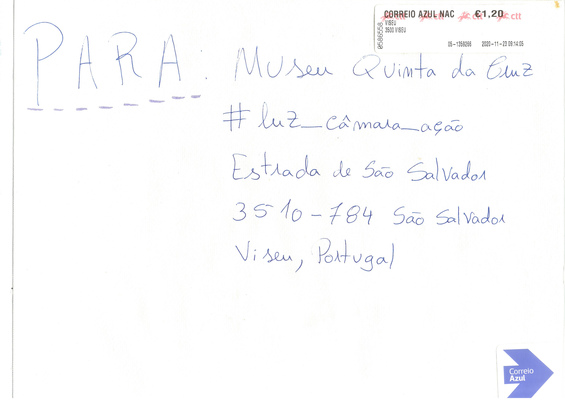 CORREIO AZUL NAC €1.20
ctt
VISEU
3500 VISEU
2020-11-23 09:14:05
PARA: Museu Quinta da Cruz
#luz_câmara_ação
Estrada de São Salvador
3510-784 São Salvador
Viseu, Portugal
Correio
Azul